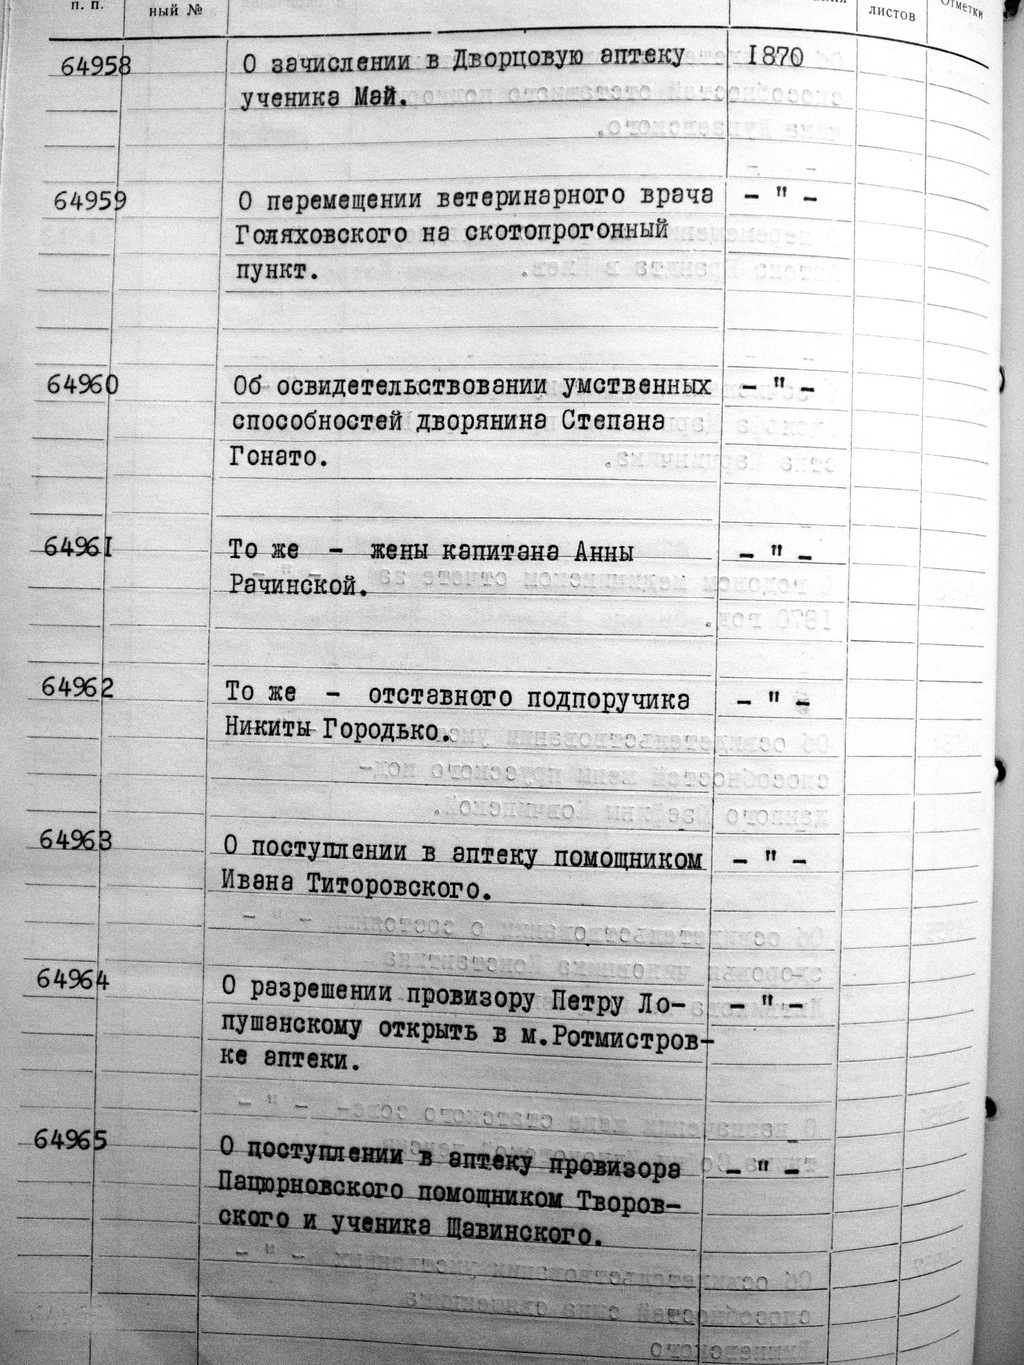 п. п.
ный №
листов
Отметки
64958 О зачислении в Дворцовую аптеку 1870
ученика Май.
64959 О перемещении ветеринарного врача - " -
Голяховского на скотопрогонный
пункт.
64960 Об освидетельствовании умственных - " -
способностей дворянина Степана
Гонато.
64961 То же - жены капитана Анны - " -
Рачинской.
64962 То же - отставного подпоручика - " -
Никиты Городько.
64963 О поступлении в аптеку помощником - " -
Ивана Титоровского.
64964 О разрешении провизору Петру Ло- - " -
пушанскому открыть в м.Ротмистров-
ке аптеки.
64965 О поступлении в аптеку провизора - " -
Пацюрновского помощником Творов-
ского и ученика Щавинского.